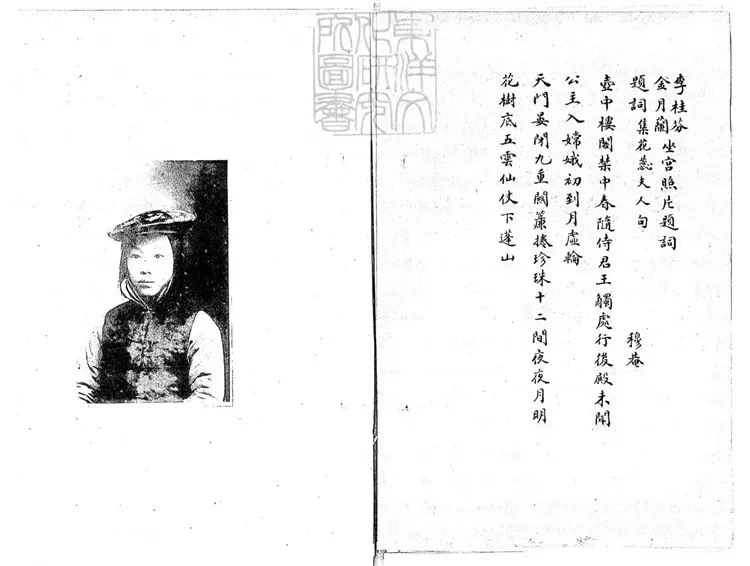 東洋文
化研究
所圖書
李桂芬
金月蘭坐宮照片題詞
題詞集花蕊夫人句 穆菴
壺中樓閣禁中春隨侍君王觸處行後殿未聞
公主入嫦娥初到月虛輪
天門晏閉九重關簾捲珍珠十二間夜夜月明
花樹底五雲仙仗下蓬山